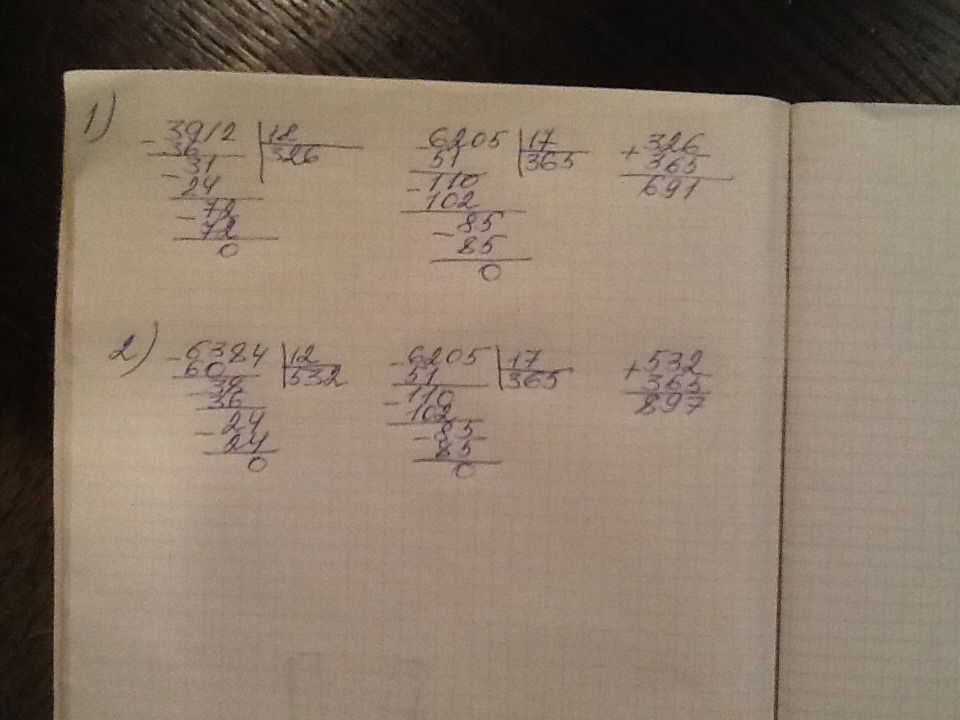 1)
- 3912 | 12
36 | 326
- 31
24
- 72
72
0
- 6205 | 17
51 | 365
- 110
102
- 85
85
0
+ 326
365
691
2)
- 6384 | 12
60 | 532
- 38
36
- 24
24
0
- 6205 | 17
51 | 365
- 110
102
- 85
85
0
+ 532
365
897